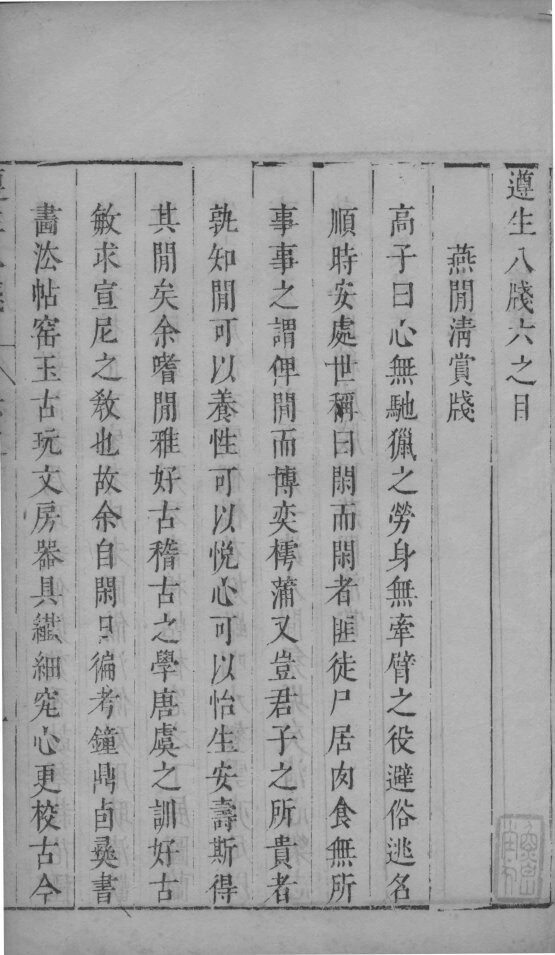 遵生八牋六之目
燕閒清賞牋
高子曰心無馳獵之勞身無牽臂之役避俗逃名
順時安處世稱曰閑而閑者匪徒尸居肉食無所
事事之謂俾閒而博奕樗蒲又豈君子之所貴者
孰知閒可以養性可以悅心可以怡生安壽斯得
其閒矣余嗜閒雅好古稽古之學唐虞之訓好古
敏求宣尼之教也故余自閑日徧考鐘鼎卣彝書
畫法帖窑玉古玩文房器具纖細究心更校古今